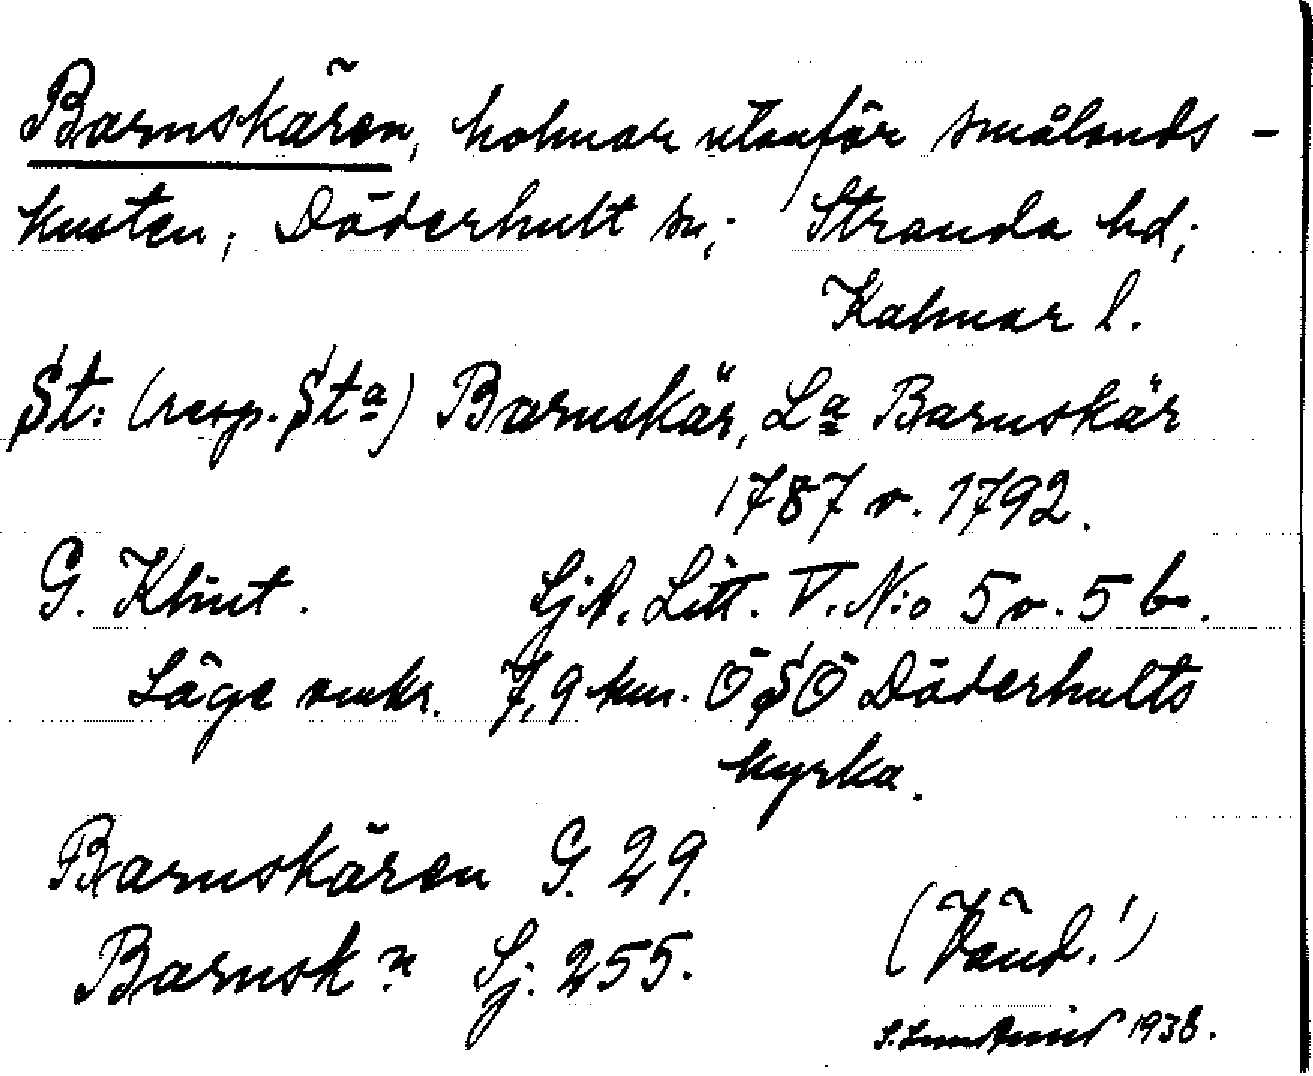 Barnskären, holmar utanför Smålands-
kusten, Döderhult sn; Stranda hd;
Kalmar l.
St: (resp. Sta) Barnskär, La Barnskär
1787 o. 1792.
G. Klint. SjA. Litt. V. N:o 5 o. 5 b.
Läge omkr. 7,9 km. ÖSÖ Döderhults
kyrka.
Barnskären G. 29.
Barnsk n Sj. 255.
(Vänd!)
1938.